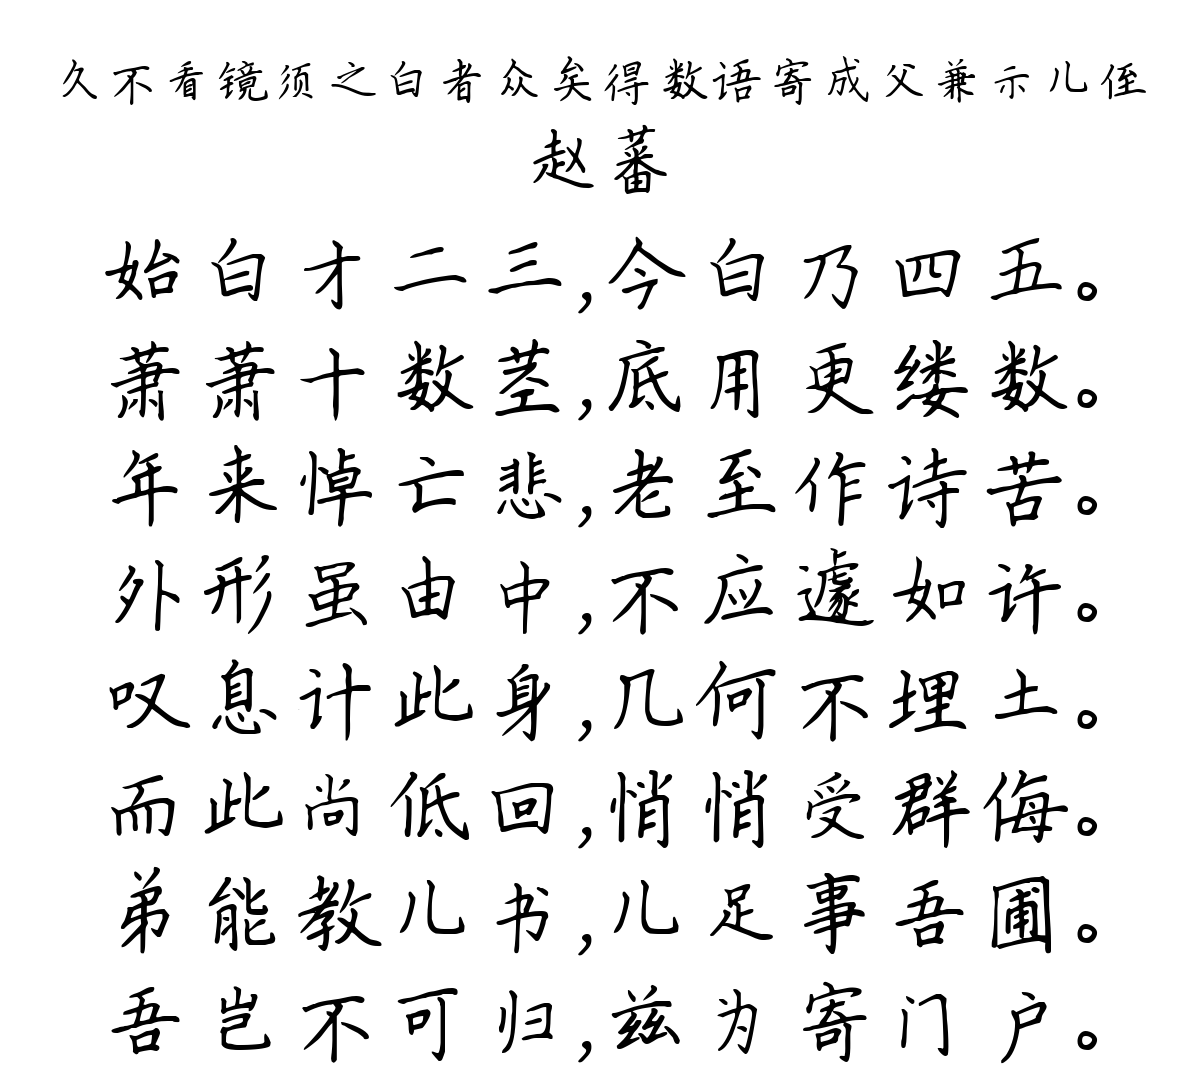 久不看镜须之白者众矣得数语寄成父兼示儿侄
赵蕃
始白才二三,今白乃四五。
萧萧十数茎,底用更缕数。
年来悼亡悲,老至作诗苦。
外形虽由中,不应遽如许。
叹息计此身,几何不埋土。
而此尚低回,悄悄受群侮。
弟能教儿书,儿足事吾圃。
吾岂不可归,兹为寄门户。